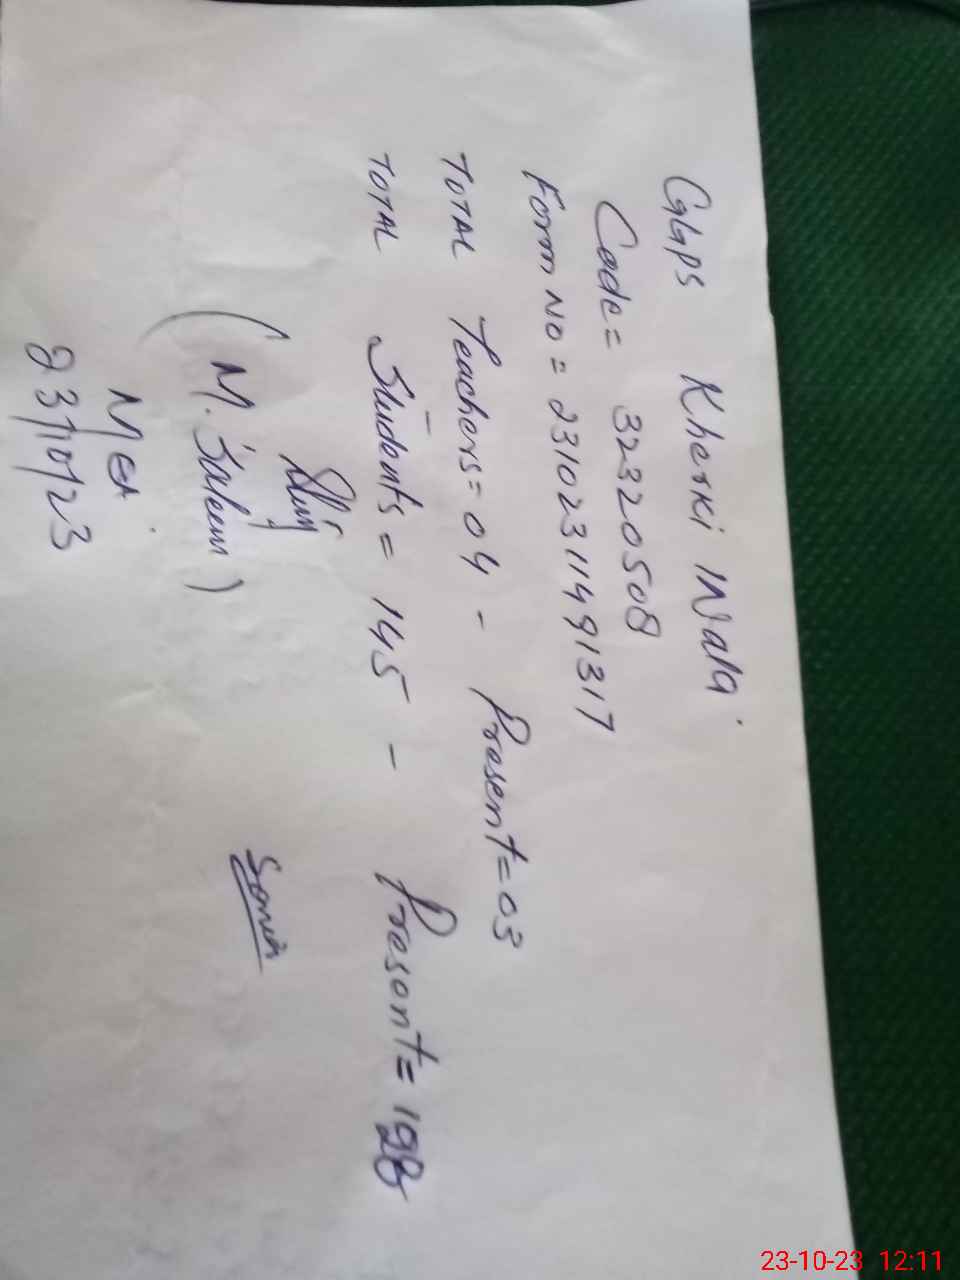 GGPS Kherki Wala
Code = 32320508
Form No = 23102311491317
TOTAL Teachers = 04 - Present = 03
TOTAL Students = 145 - Present = 128
(M. Saleem)
MEA
23/10/23
23-10-23 12:11